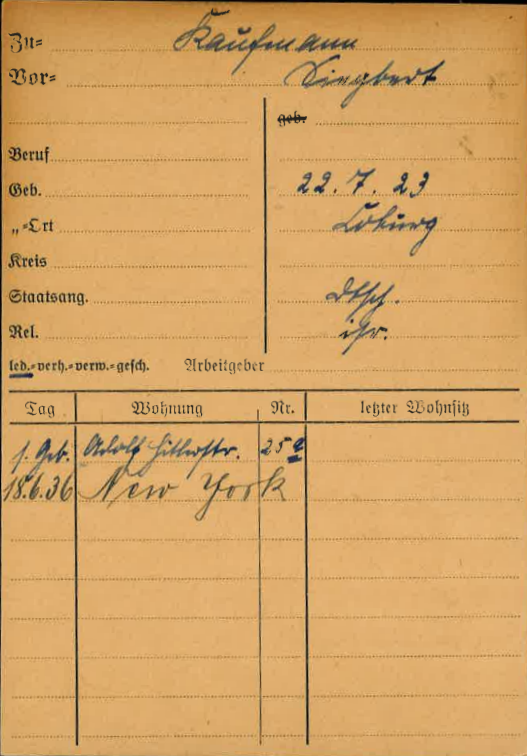 Zu= Kaufmann
Vor= Siegbert
geb.
Beruf
Geb. 22.7.23
„=Ort Coburg
Kreis
Staatsang. dtsch.
Rel. isr.
led.=verh.=verw.=gesch. Arbeitgeber
Tag Wohnung Nr. letzter Wohnsitz
s. Geb. Adolf Hitlerstr. 25a
18.6.36 New York